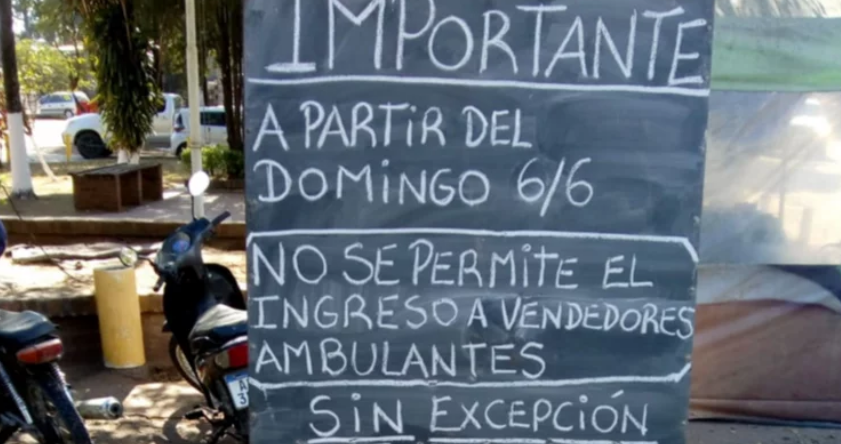 IMPORTANTE
A PARTIR DEL
DOMINGO 6/6
NO SE PERMITE EL
INGRESO A VENDEDORES
AMBULANTES
SIN EXCEPCIÓN